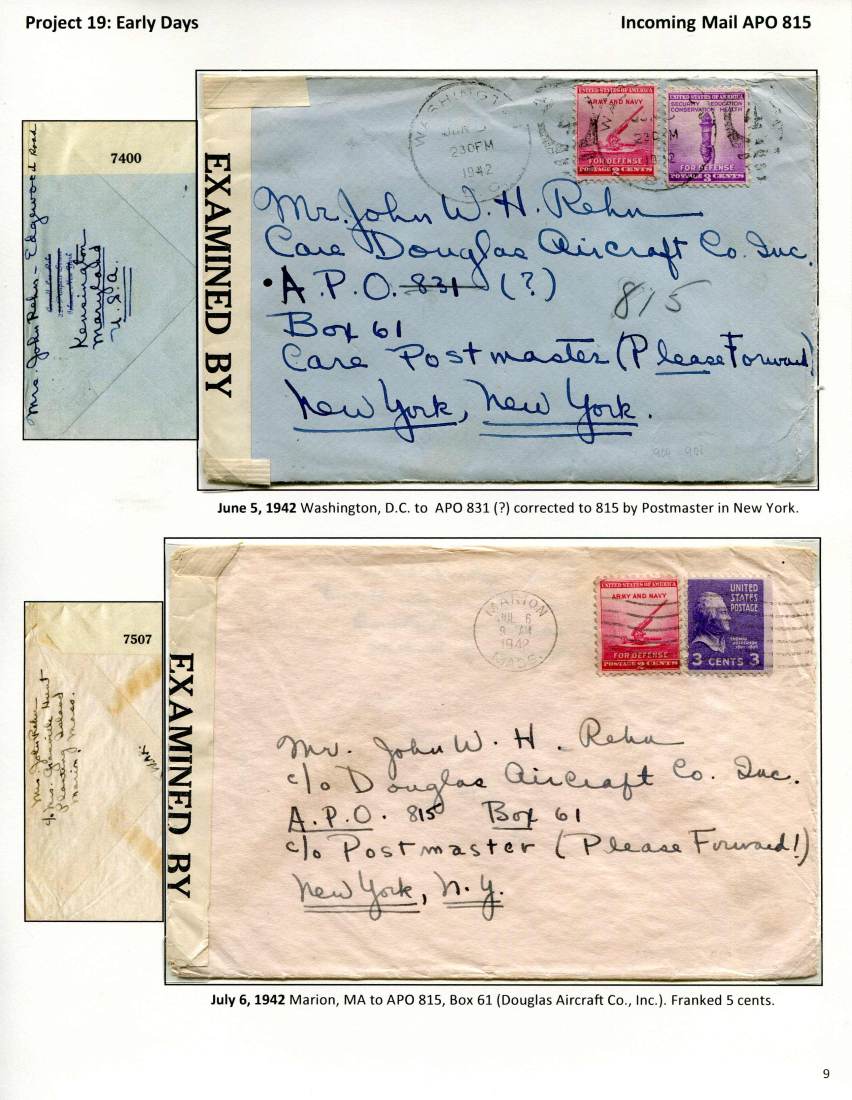 Project 19: Early Days
Incoming Mail APO 815
7400
Mrs. John Rehn - Edgewood Road
Kensington
Maryland
U.S.A.
EXAMINED BY
WASHINGTON
JUN 5
230PM
1942
D.C.
UNITED STATES OF AMERICA
ARMY AND NAVY
FOR DEFENSE
POSTAGE 2 CENTS
UNITED STATES OF AMERICA
SECURITY EDUCATION
CONSERVATION HEALTH
FOR DEFENSE
POSTAGE 3 CENTS
Mr. John W. H. Rehn
Care Douglas Aircraft Co. Inc.
A.P.O. 831 (?)
815
Box 61
Care Postmaster (Please Forward)
New York, New York.
June 5, 1942 Washington, D.C. to APO 831 (?) corrected to 815 by Postmaster in New York.
7507
Mrs. John Rehn
c/o Mrs. Granville Hunt
Planting Island
Marion, Mass.
EXAMINED BY
MARION
JUL 6
9 AM
1942
MASS.
UNITED STATES OF AMERICA
ARMY AND NAVY
FOR DEFENSE
POSTAGE 2 CENTS
UNITED
STATES
POSTAGE
THOMAS
JEFFERSON
3 CENTS 3
Mr. John W. H. Rehn
c/o Douglas Aircraft Co. Inc.
A.P.O. 815 Box 61
c/o Postmaster (Please Forward!)
New York, N.Y.
July 6, 1942 Marion, MA to APO 815, Box 61 (Douglas Aircraft Co., Inc.). Franked 5 cents.
9